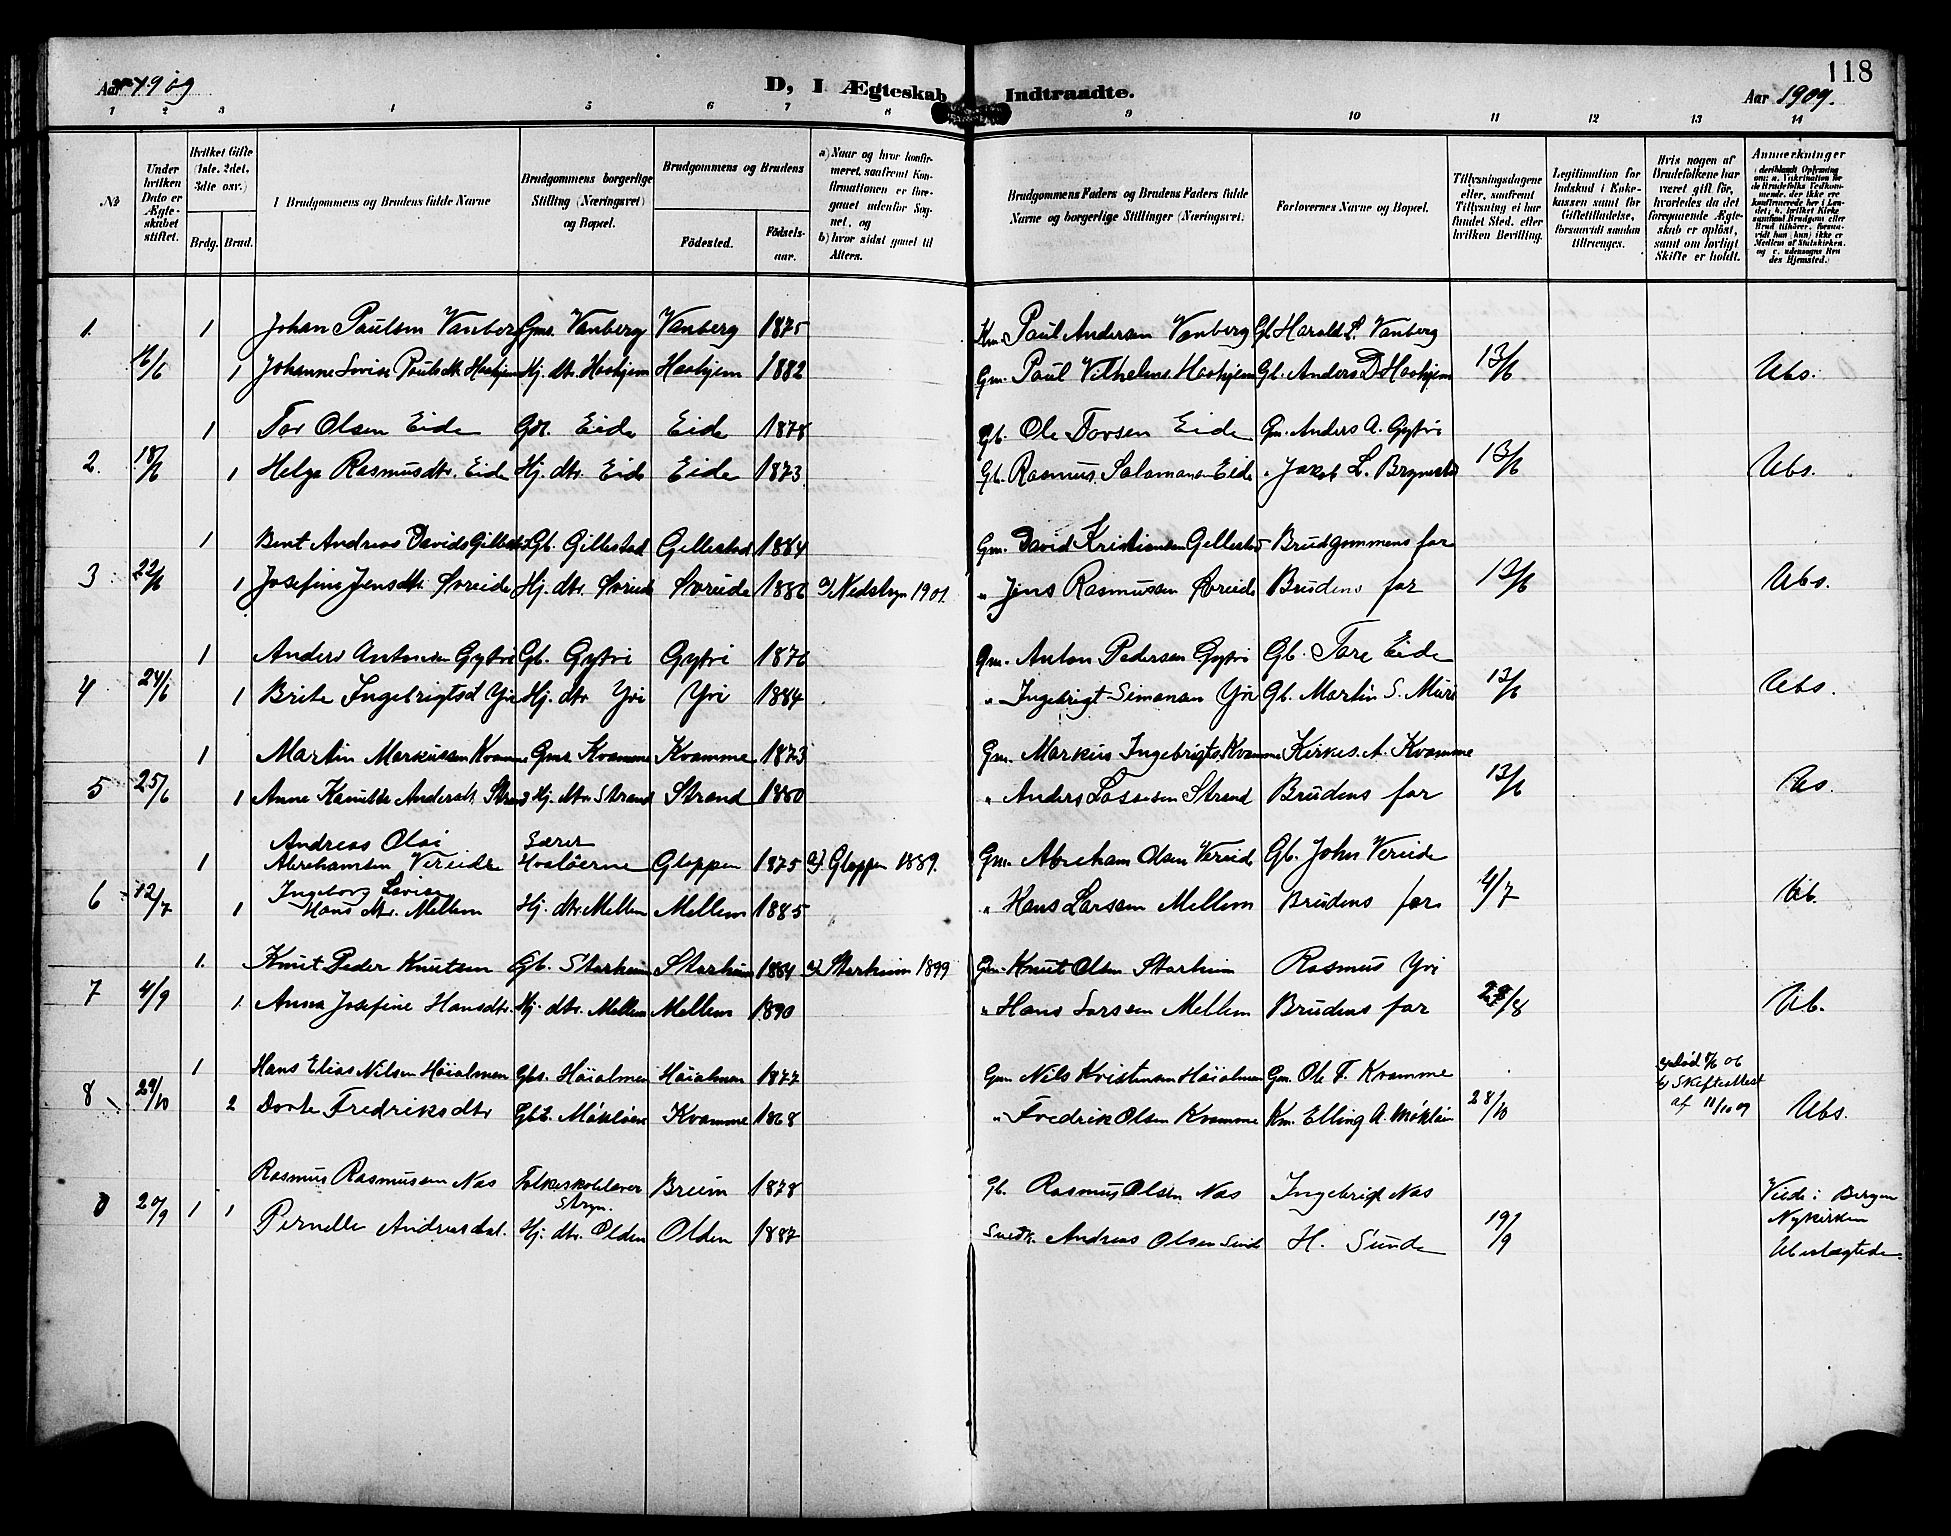 118
D, I Ægteskab Indtraadte.
Aar 1909.
1 2 3 5 6 7 8 9 10 11 12 13 14
№
Under hvilken Dato er Ægteskabet stiftet.
Hvilket Gifte (1ste, 2det, 3die osv.)
Brdg. Brud.
Brudgommens og Brudens fulde Navne
Brudgommens borgerlige Stilling (Næringsvei) og Bopæl.
Brudgommens og Brudens
Födested. Födselsaar.
a) Naar og hvor konfirmeret, saafremt Konfirmationen er foregaaet udenfor Sognet, og
b) hvor sidst gaaet til Alters.
Brudgommens Faders og Brudens Faders fulde Navne og borgerlige Stillinger (Næringsvei)
Forlovernes Navne og Bopæl.
Tillysningsdagene eller, saafremt Tillysning ei har fundet Sted, efter hvilken Bevilling.
Legitimation for Indskud i Enkekassen samt for Giftetilladelse, forsaavidt saadan tiltrænges.
Hvis nogen af Brudefolkene har været gift för, hvorledes da det foregaaende Ægteskab er oplöst, samt om lovligt Skifte er holdt.
Anmerkninger
1. 1 Johan Paulsen Vanberg Gms. Vanberg Vanberg 1875 Km. Paul Andersen Vanberg Gb. Harald L. Vanberg
16/6 1 Johanne Lovise Paulsdtr. Haahjem Hj. dtr. Haahjem Haahjem 1882 Gm. Paul Vilhelms. Haahjem Gb. Anders D Haahjem 13/6 Ubs.
1 Tor Olsen Eide Eide Eide 1878 Gb. Ole Torsen Eide Gm. Anders A. Gytri
2. 18/6 1 Helga Rasmusdtr. Eide Hj. dtr. Eide Eide 1873 Gb. Rasmus Salamonsen Eide " Jakob L. 13/6 Ubs.
1 Bent Andreas Davids Gillestad Gb. Gillestad Gillestad 1884 Gm. David Kristiansen Gellestad Brudgommens far
3 22/6 1 Josefine Jensdtr. Hj. dtr. 1886 a) Nedstryn 1901. " Jens Rasmussen Brudens far 13/6 Ubs.
1 Anders Antonsen Gytri Gb. Gytri Gytri 1876 Gm. Anton Pedersen Gytri Gb. Tore Eide
4 24/6 1 Brite Ingebrigtsd Yri Hj. dtr Yri Yri 1884 " Ingebrigt Simonsen Yri Gb. Martin S. Muri 13/6 Ubs.
1 Martin Markussen Kvamme Gms. Kvamme Kvamme 1873 Gm. Markus Ingebrigts. Kvamme Kirkes. A. Kvamme
5 25/6 1 Anne Andersdt. Strand Hj. dtr Strand Strand 1880 " Anders Lassesen Strand Brudens far 13/6 Us.
Andreas Olai
1 Abrahamsen Vereide Gloppen 1875 a) Gloppen 1889. Gm. Abraham Olsen Vereide Gb. John Vereide
Ingeborg Lovise
6 12/7 1 Hansdtr. Mellem Hj. dtr. Mellem Mellem 1885 " Hans Larsen Mellem Brudens far 4/7 Ub.
1. Knut Peder Knutsen Gb. Starheim Starheim 1884 a) Starheim 1899 Gm. Knut Olsen Starheim Rasmus Yri
7 4/9 1 Anna Josefine Hansdtr. Hj. dtr. Mellem Mellem 1890 " Hans Larsen Mellem Brudens far 29/8 Ub.
1 Hans Elias Nilsen Höialmen Gbs. Höialmen Höialmen 1877 Gm Nils Kristensen Höialmen Gm. Ole F. Kvamme
8 29/10 2 Dorte Fredriksdtr Kvamme 1868 " Fredrik Olsen Kvamme Km. Elling A. 28/10 b) Skifteattest af 11/10 09 Ubs.
Rasmus Rasmussen Nos Folkeskolelærer Stryn. Breim 1878 Gb. Rasmus Olsen Nos Ingebrigt Nos
20/9 1 1 Pernelle Andreasdat. Hj. dtr. Olden Olden 1887 Snedk. Andreas Olsen Sunde H. Sunde 19/9
Viede i Bergen
Nykirken
Ubeslægtede